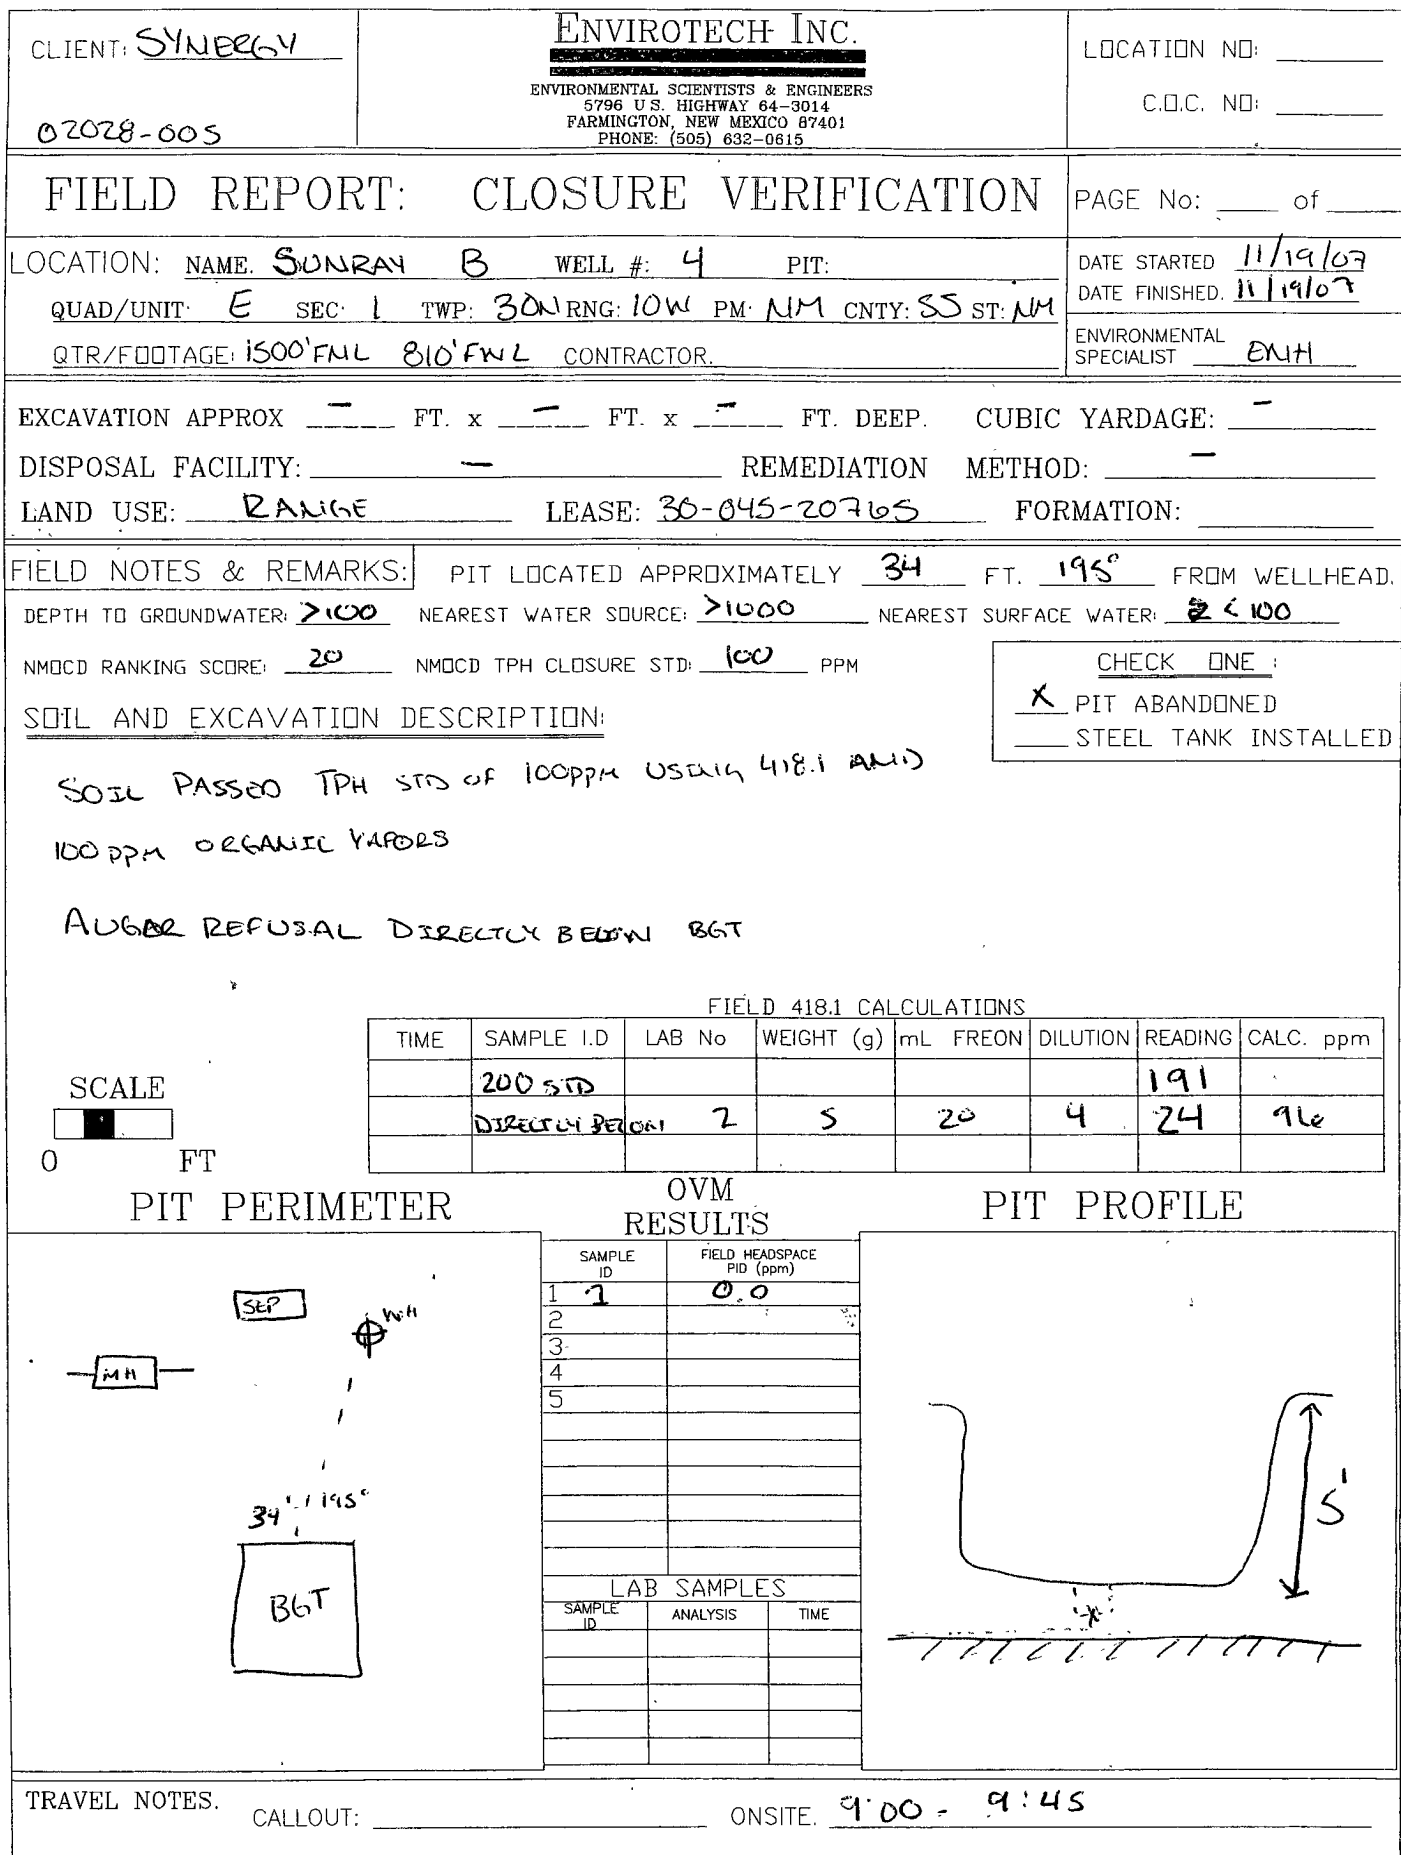 CLIENT: SYNERGY
02028-005
ENVIROTECH INC.
ENVIRONMENTAL SCIENTISTS & ENGINEERS
5796 U S. HIGHWAY 64-3014
FARMINGTON, NEW MEXICO 87401
PHONE: (505) 632-0615
LOCATION NO:
C.O.C. NO:
FIELD REPORT: CLOSURE VERIFICATION
PAGE No: ____ of ____
LOCATION: NAME. SUNRAY B WELL #: 4 PIT:
QUAD/UNIT E SEC 1 TWP: 30N RNG: 10W PM NM CNTY: SS ST: NM
QTR/FOOTAGE: 1500'FNL 810'FWL CONTRACTOR.
DATE STARTED 11/19/07
DATE FINISHED. 11/19/07
ENVIRONMENTAL
SPECIALIST ENH
EXCAVATION APPROX - FT. x - FT. x - FT. DEEP. CUBIC YARDAGE: -
DISPOSAL FACILITY: - REMEDIATION METHOD: -
LAND USE: RANGE LEASE: 30-045-20765 FORMATION:
FIELD NOTES & REMARKS: PIT LOCATED APPROXIMATELY 34 FT. 195° FROM WELLHEAD.
DEPTH TO GROUNDWATER: >100 NEAREST WATER SOURCE: >1000 NEAREST SURFACE WATER: < 100
NMOCD RANKING SCORE: 20 NMOCD TPH CLOSURE STD: 100 PPM
CHECK ONE :
X PIT ABANDONED
STEEL TANK INSTALLED
SOIL AND EXCAVATION DESCRIPTION:
SOIL PASSED TPH STD OF 100PPM USING 418.1 AND
100 PPM ORGANIC VAPORS
AUGER REFUSAL DIRECTLY BELOW BGT
FIELD 418.1 CALCULATIONS
TIME SAMPLE I.D LAB No WEIGHT (g) mL FREON DILUTION READING CALC. ppm
200 STD 191
DIRECTLY BELOW 2 5 20 4 24 96
SCALE
0 FT
PIT PERIMETER
OVM
RESULTS
PIT PROFILE
SAMPLE ID
FIELD HEADSPACE PID (ppm)
1 1 0.0
2
3
4
5
SEP
WH
MH
34' 195°
BGT
5'
LAB SAMPLES
SAMPLE ID ANALYSIS TIME
TRAVEL NOTES. CALLOUT: ONSITE. 9:00 - 9:45